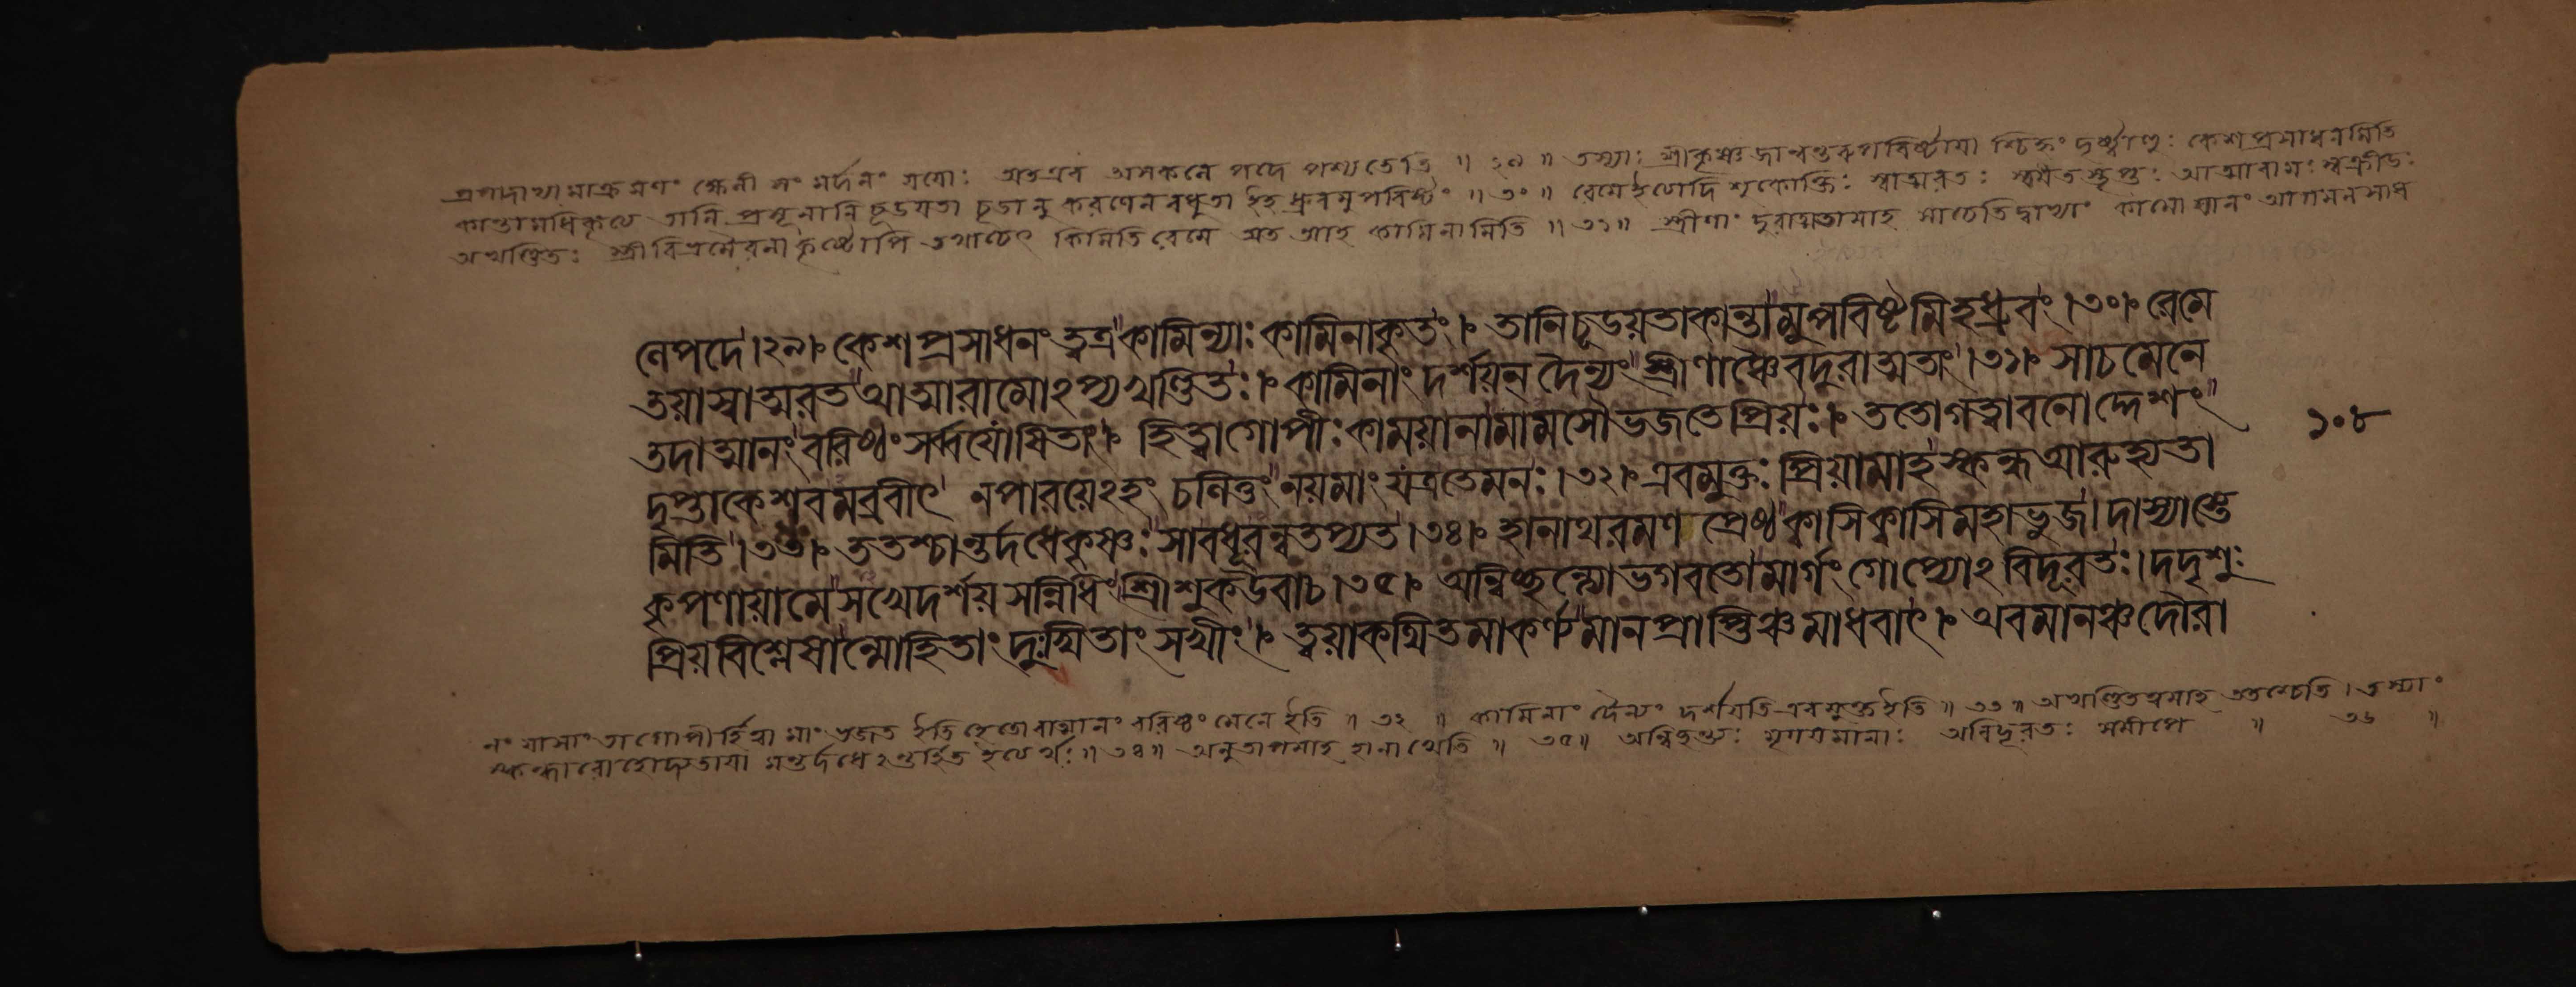 প্রপদাভ্যামাক্রমণং ক্ষোনী সং মর্দনং যয়োঃ অতএব অসকলে পদে পশ্যতেতি ॥ ২৯ ॥ তস্যাঃ শ্রীকৃষ্ণ জান্বন্তরুপবিষ্টায়া শ্চিহ্নং দৃষ্ট্বাহুঃ কেশপ্রসাধনমিতি
কান্তামধিকৃত্য তানি প্রসূনানি চূডয়তা চূডানুকরণেন বধ্নতা ইহ ধ্রুবমুপবিষ্টং ॥ ৩০ ॥ রেমে ইত্যাদি শুকোক্তিঃ স্বাত্মরতঃ স্বতস্তুষ্টঃ আত্মারামঃ স্বক্রীডঃ
অখণ্ডিতঃ স্ত্রীবিভ্রমৈরনাকৃষ্টোপি তথাচেৎ কিমিতি রেমে অত আহ কামিনামিতি ॥ ৩১ ॥ স্ত্রীণাং দুরাত্মতামাহ সাচেতিদ্বাভ্যাং কামো যানং আগমনসাধ
নেপদে।২৯।ঃ কেশপ্রসাধনং ত্বত্রকামিন্যাঃ কামিনাকৃতং।ঃ তানিচূডয়তাকান্তামুপবিষ্টমিহধ্রুবং।৩০।ঃ রেমে
তয়াস্বাত্মরতআত্মারামোঽপ্যখণ্ডিতঃ।ঃ কামিনাং দর্শয়ন দৈন্যং স্ত্রীণাঞ্চৈবদুরাত্মতাং।৩১।ঃ সাচমেনে
তদাত্মানং বরিষ্ঠং সর্ব্বযোষিতাং।ঃ হিত্বাগোপীঃ কাময়ানামামসৌভজতেপ্রিয়ঃ।ঃ ততোগত্বাবনোদ্দেশং
দৃপ্তাকেশবমব্রবীৎ নপারয়েঽহং চলিতুং নয়মাং যত্রতেমনঃ।৩২।ঃ এবমুক্তঃ প্রিয়ামাহ স্কন্ধআরুহ্যতা
মিতি।৩৩।ঃ ততশ্চান্তর্দধেকৃষ্ণঃ সাবধূরন্বতপ্যত।৩৪।ঃ হানাথরমণ প্রেষ্ঠক্বাসিক্বাসিমহাভুজ। দাস্যাস্তে
কৃপণায়ামেসখেদর্শয়সন্নিধিং শ্রীশুকউবাচ।৩৫।ঃ অন্বিচ্ছন্ত্যোভগবতোমার্গং গোপ্যোঽবিদূরতঃ।দদৃশুঃ
প্রিয়বিশ্লেষান্মোহিতাং দুঃখিতাং সখীং।ঃ ত্বয়াকথিতমাকর্ণ্যমানপ্রাপ্তিঞ্চমাধবাৎ।ঃ অবমানঞ্চদৌরা
১০৮
নং যাসাং তা গোপীর্হিত্বা মাং ভজত ইতি হেতোরাত্মানং বরিষ্ঠং মেনে ইতি ॥ ৩২ ॥ কামিনাং দৈন্যং দর্শয়তি এবমুক্ত ইতি ॥ ৩৩ ॥ অখণ্ডিতত্বমাহ ততশ্চেতি। তস্যাং
স্কন্ধারোহোদ্যতায়া মন্তর্দধেঽন্তর্হিত ইত্যর্থঃ ॥ ৩৪ ॥ অনুতাপমাহ হানাথেতি ॥ ৩৫ ॥ অন্বিচ্ছন্ত্যঃ মৃগয়মানাঃ অবিদূরতঃ সমীপে ॥ ৩৬ ॥